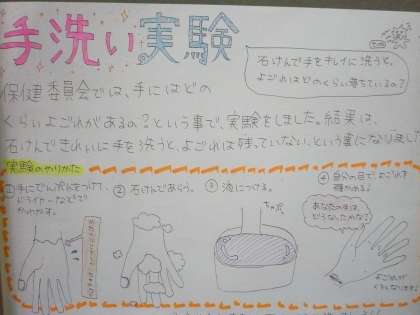 手洗い実験
石けんで手をキレイに洗うと、
よごれはどのくらい落ちているの?
保健委員会では、手にはどの
くらいよごれがあるの?という事で、実験をしました。結果は、
石けんできれいに手を洗うと、よごれは残っていない、という事になりました!
実験のやりかた
①手にでんぷんをつけて、
ドライヤーなどで
かわかす。
②石けんであらう。
③液につける。
ちゃぷ
④自分の目で、よごれを
確かめる!
あなたの手は、
どうなったかな?
よごれが